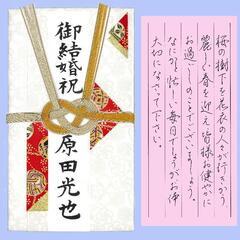 御結婚祝
原田光也
桜の樹下を花衣の人々が行きかう
麗しい春を迎え皆様お健やかに
お過しのことでございましょう。
なにかと忙しい毎日でしょうがお体
大切になさって下さい。